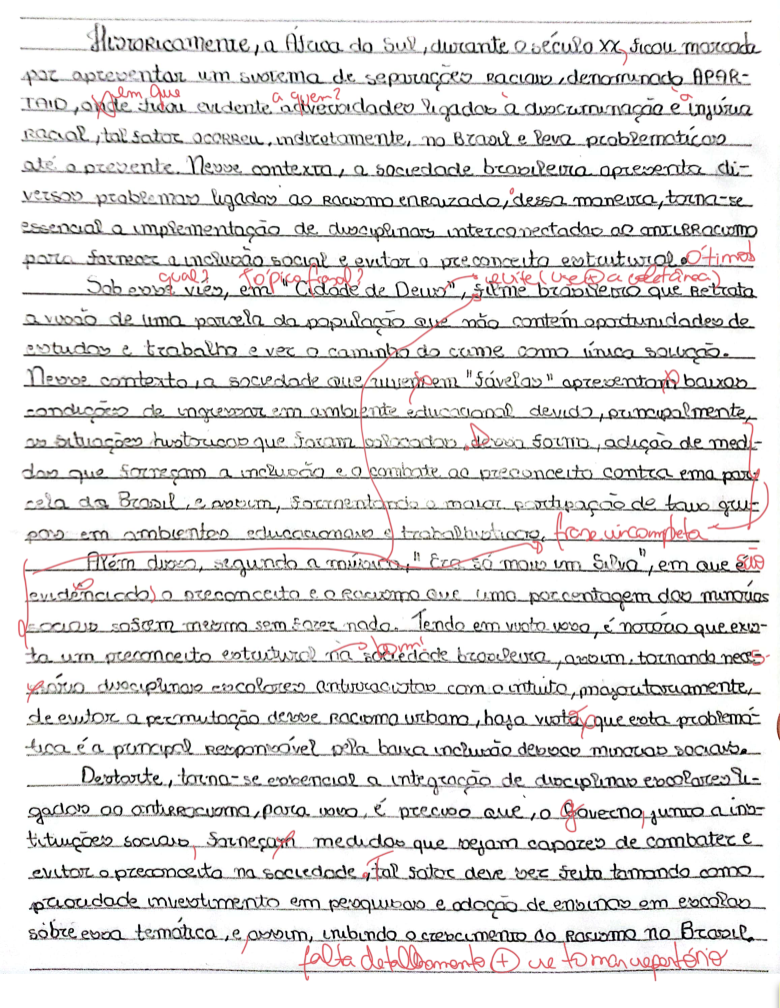 Historicamente, a África do Sul, durante o século XX, ficou marcada
por apresentar um sistema de separações raciais, denominado APAR-
em que a quem? a
TAID, onde ficou evidente adversidades ligados a discriminação e injúria
racial, tal fator ocorreu, indiretamente, no Brasil e leva problemáticas
até o presente. Nesse contexto, a sociedade brasileira apresenta di-
versos problemas ligados ao racismo enraizado, dessa maneira, torna-se
essencial a implementação de disciplinas interconectadas ao antirracismo
para fornecer a inclusão social e evitar o preconceito estrutural. Ótimo
qual? Tópico frasal? evite (use + a coletânea)
Sob esse viés, em "Cidade de Deus", filme brasileiro que retrata
a visão de uma parcela da população que não contém oportunidades de
estudos e trabalho e ver o caminho do crime como única solução.
Nesse contexto, a sociedade que vivem em "fávelas" apresentam baixas
condições de ingressar em ambiente educacional devido, principalmente,
as situações históricas que foram colocadas. Dessa forma, adução de medi-
das que forneçam a inclusão e o combate ao preconceito contra ema par-
cela da Brasil, e assim, formentando o maior partipação de tais gru-
pos em ambientes educacionais e trabalhisticos. frase incompleta
Além disso, segundo a música, "Era só mais um Silva", em que é são
evidênciado o preconceito e o racismo que uma porcentagem das minorias
sociais sofrem mesmo sem fazer nada. Tendo em vista isso, é notório que exis-
bom!
ta um preconceito estrutural na sociedade brasileira, assim, tornando neces-
sário disciplinas escolares antirracistas com o intuito, majoritariamente,
de evitar a permutação desse racismo urbano, haja vista, que esta problemá-
tica é a principal responsável pela baixa inclusão dessas minorias sociais.
Destarte, torna-se essencial a integração de disciplinas escolares li-
gados ao antirracismo, para isso, é preciso que, o Governo, junto a ins-
tituições sociais, forneçam medidas que sejam capazes de combater e
evitar o preconceito na sociedade, Tal fator deve ser feito tomando como
prioridade investimento em pesquisas e adoção de ensinos em escolas
sôbre essa temática, e, assim, inibindo o crescimento do racismo no Brasil.
falta detalhamento +